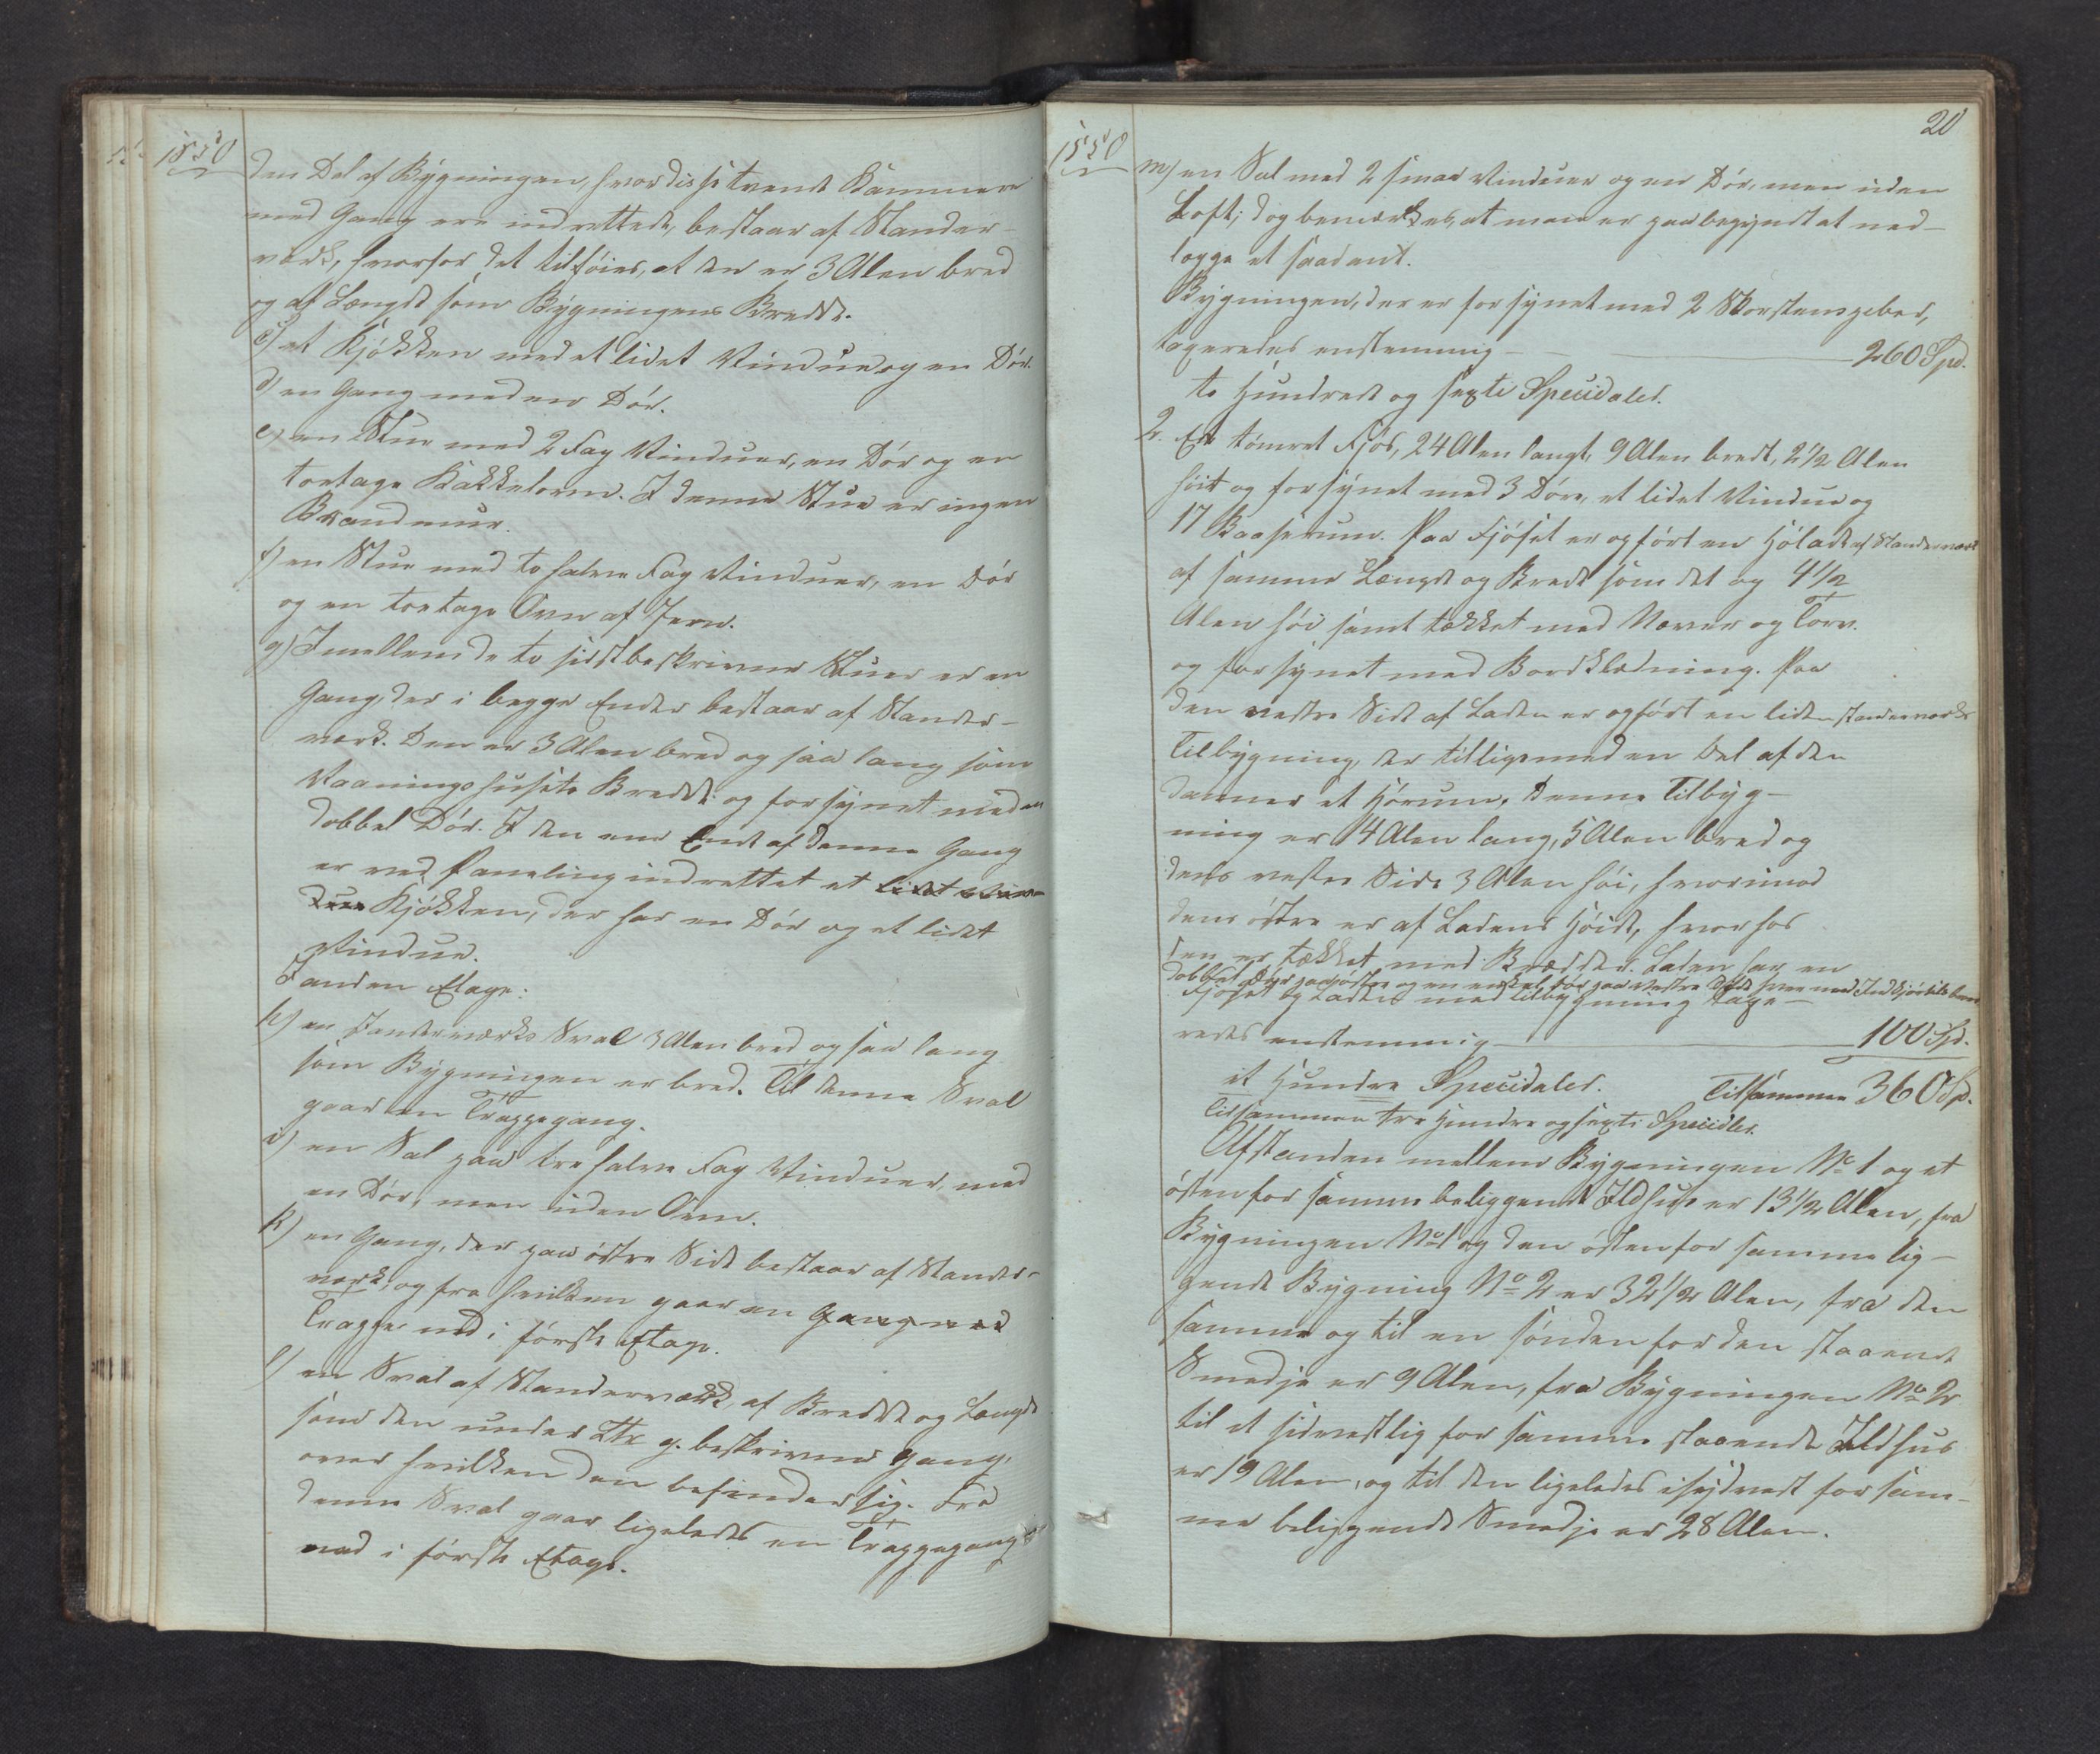 1850
den Del af Bygningen, hvor disse tvende Kammere
med Gang ere indrettede, bestaar af Stander-
værk, hvorfor det tilföies, at den er 3 Alen bred
og af Længde som Bygningens Bredde.
c) et Kjökken med et lidet Vindue og en Dör.
d) en Gang med en Dör.
e) en Stue med 2 Fag Vinduer, en Dör og en
toetages Kakkelovn. I denne Stue er ingen
Brandmur.
f) en Stue med to halve Fag Vinduer, en Dör
og en toetages Ovn af Jern.
g) Imellem de to sidstbeskrivne Stuer er en
Gang, der i begge Ender bestaar af Stander-
værk. Den er 3 Alen bred og saa lang som
Vaaningshusets Bredde og forsynet med en
dobbel Dör. I den ene Ende af denne Gang
er ved Paneling indrettet et lidet Vin-
due Kjökken, der har en Dör og et lidet
Vindue.
I anden Etage:
h) en Standerværks Sval 3 Alen bred og saa lang
som Bygningen er bred. Til denne Sval
gaar en Trappegang.
i) en Sal paa tre halve Fag Vinduer, med
en Dör, men uden Ovn.
k) en Gang, der paa östre Side bestaar af Stander-
værk, og fra hvilken gaar en Gang ned
Trappe ned i förste Etage.
l) en Sval af Standerværk, af Bredde og Længde
som den under Ltr g. beskrivne Gang,
over hvilken den befinder sig. Fra
denne Sval gaar ligeledes en Trappegang
ned i förste Etage.
20
1850
m) en Sal med 2 smaa Vinduer og en Dör, men uden
Loft; dog bemærkes, at man er paabegyndt at ned-
lægge et saadant.
Bygningen, der er forsynet med 2 Skorstenspiber,
taxeredes enstemmig 260 Spd.
to Hundrede og sexti Speciedaler.
2. Et tömret Fjös, 24 Alen langt, 9 Alen bredt, 2 1/2 Alen
höit og forsynet med 3 Döre, et lidet Vindue og
17 Baaserum. Paa Fjöset er opfört en Hölade af Standerværk
af samme Længde og Bredde som det og 4 1/2
Alen höi samt tækket med Næver og Torv.
og forsynet med Bordklædning. Paa
den vestre Side af Laden er opfört en liden standerværks
Tilbygning, der tilligemed en Del af den
danner et Hörum. Denne Tilbyg-
ning er 14 Alen lang, 5 Alen bred og
dens vestre Side 3 Alen höi, hvorimod
dens östre er af Ladens Höide, hvorhos
den er tækket med Brædder. Laden har en
dobbel Dör paa östre og en enkelt Dör paa vestre Side hver med Indkjörselsbro
Fjöset og Laden med Tilbygning taxe-
redes enstemmig 100 Spd.
et Hundre Speciedaler. Tilsammen 360 Spd.
Tilsammen tre Hundre og sexti Speciedlr.
Afstanden mellem Bygningen No 1 og et
östenfor samme beliggende Ildhus er 13 1/2 Alen, fra
Bygningen No 1 og den östenfor samme lig-
gende Bygning No 2 er 32 1/2 Alen, fra den
samme og til en sönden for den staaende
Smedje er 9 Alen, fra Bygningen No 2
til et sidvestlig for samme staaende Ildhus
er 19 Alen, og til den ligeledes i sydvest for sam-
me beliggende Smedje er 28 Alen.